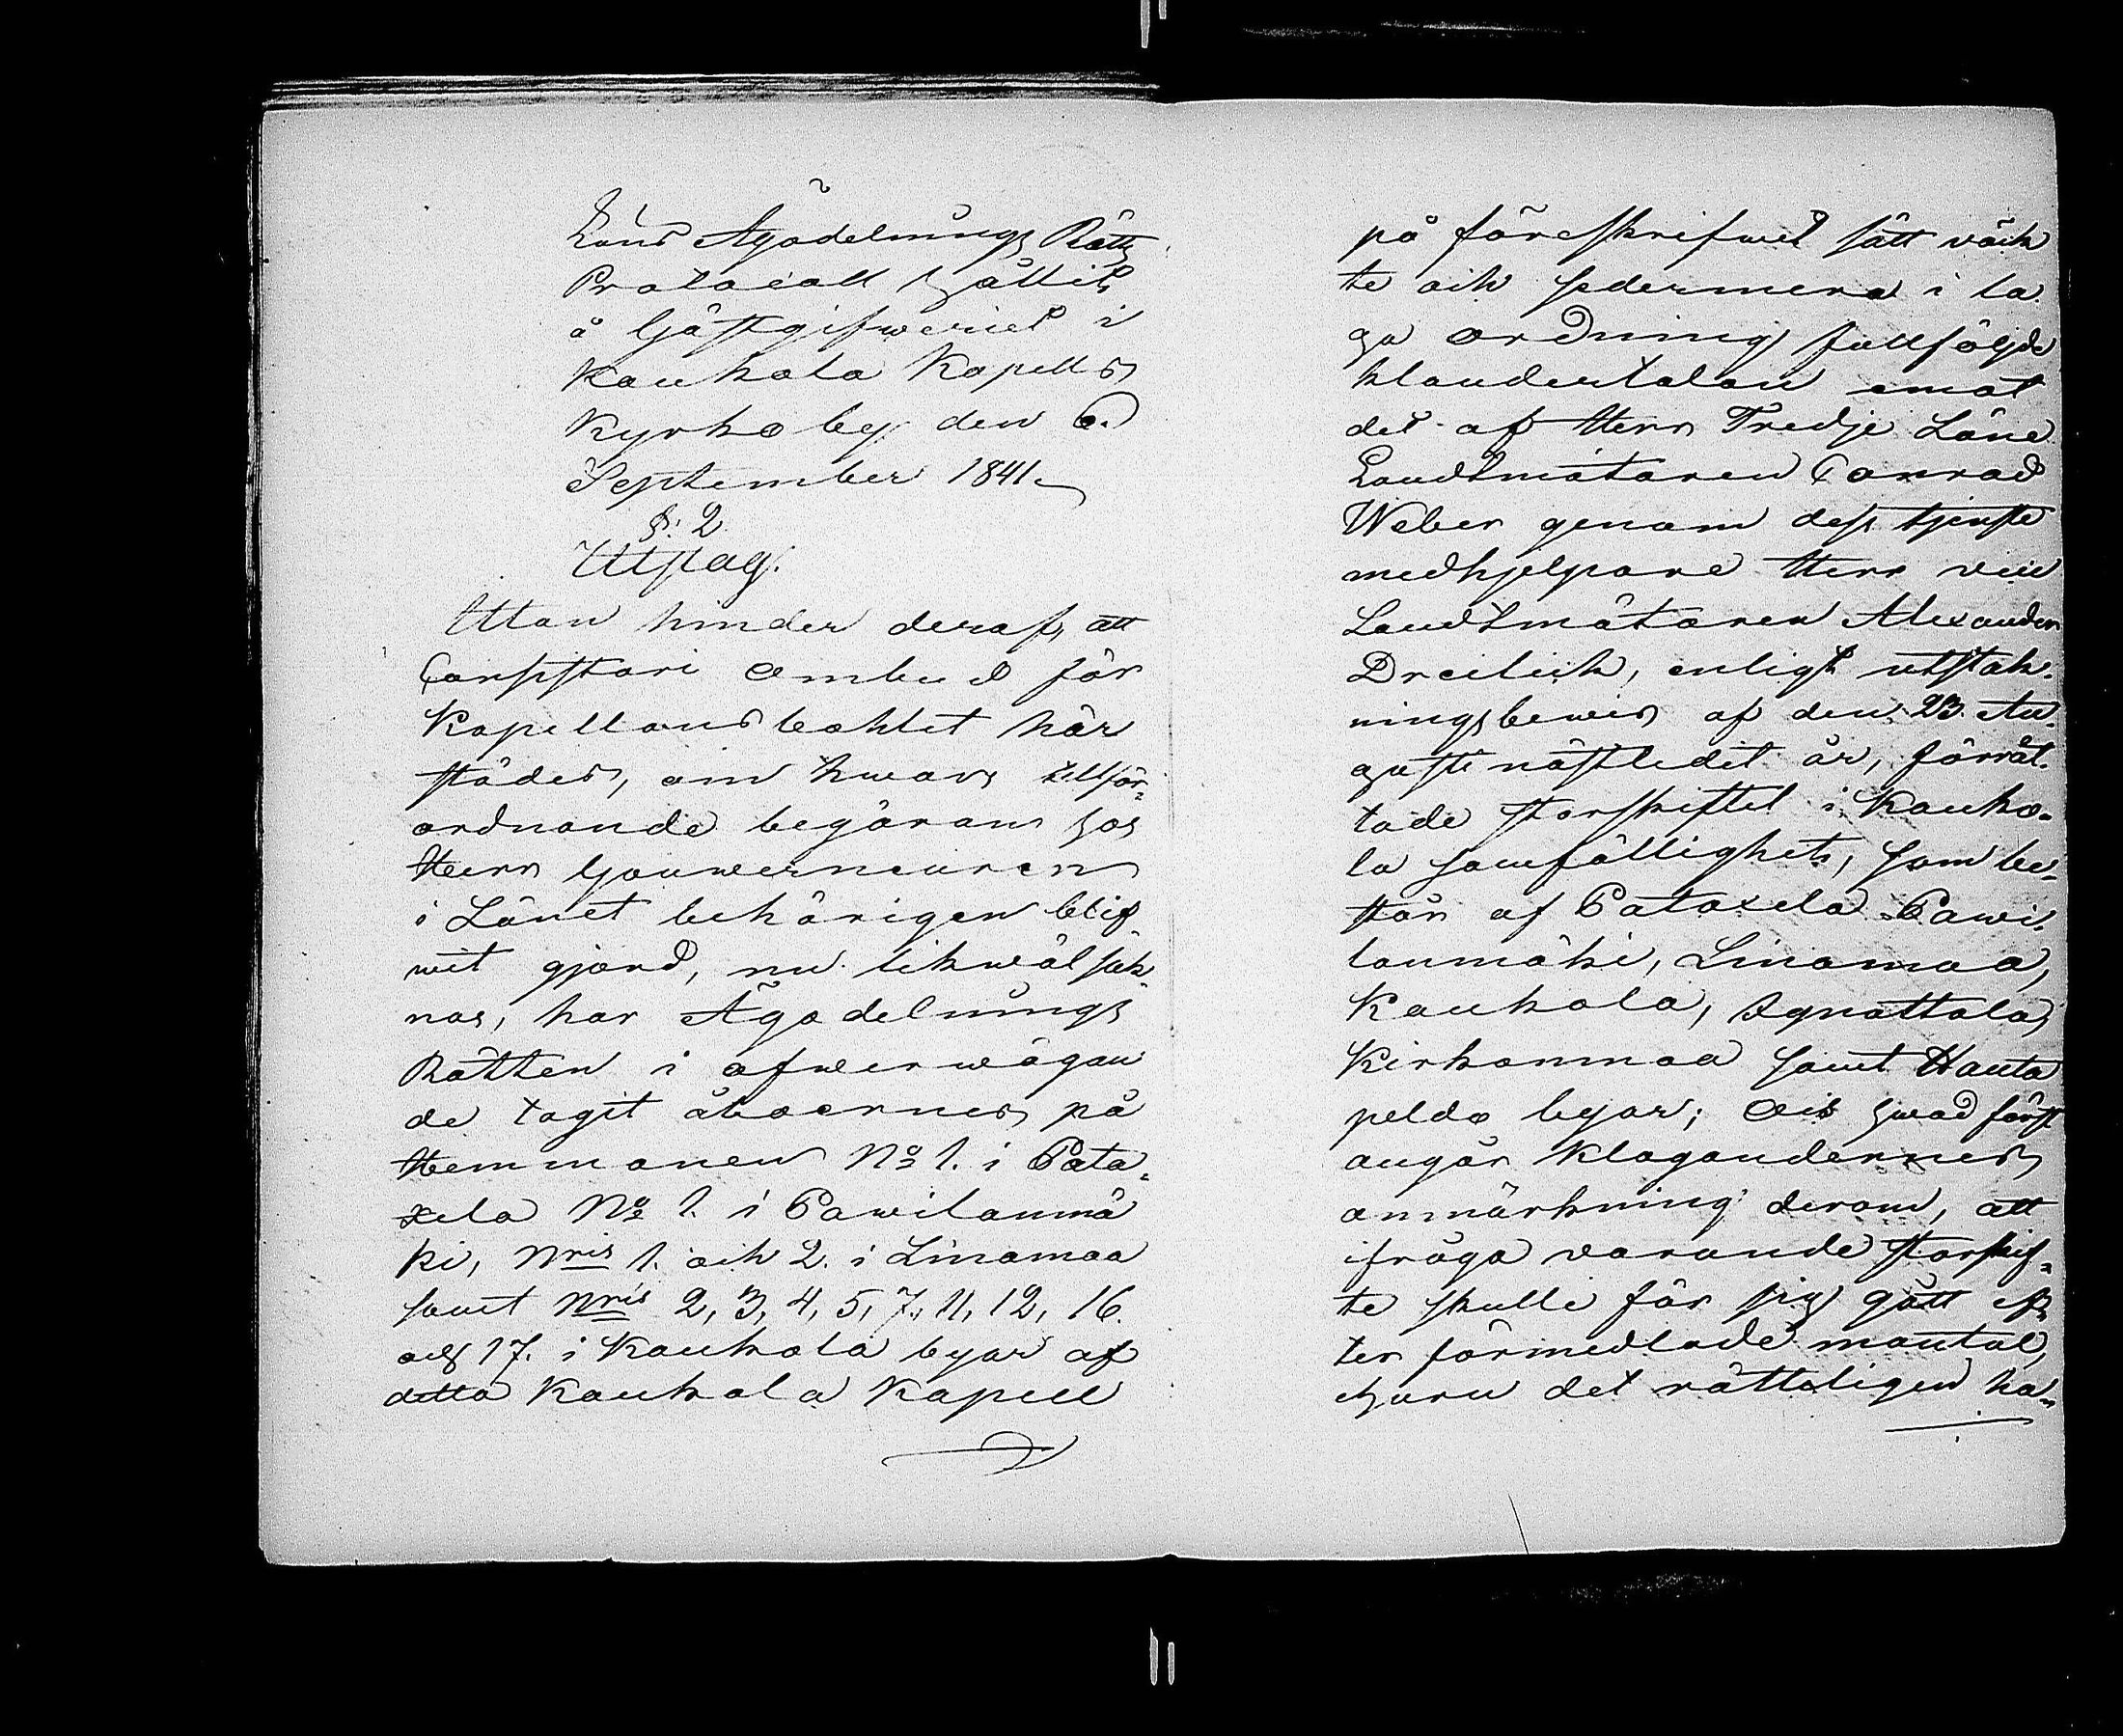 Ägodelnings Rätts
Protocoll hållit
å Gästgifweriet i
Kaukola Kapells
Kyrkoby den 6.
September 1841.
§: 2.
Utslag.
Utan hinder deraf, att
Consistorii Ombud för
Kapellansbohlet här
städes, om hwars tillför-
ordnande begäran hos
Herr Gouverneuren
i Länet behörigen blif
wit gjord, nu likwäl sak-
nas, har Ägodelnings
Rätten i öfwerwägan
de tagit åboernes på
Hemmanen No 1. i Pata-
xela No 1. i Pawilanmä
ki, Nris 1. och 2. i Linamaa
samt Nris 2, 3, 4, 5, 7, 11, 12, 16.
och 17. i Kaukola byar af
detta Kaukola Kapell
på föreskrifwet sätt väck
te och sedermera i la
ga ordning fullföljde
klandertalan emot
det af Herr Tredje Läne
Landtmätaren Conrad
Weber genom dess tjenste
medhjelpare Herr vice
Landtmätaren Alexander
Dreilick, enligt utstak-
ningsbewis af den 23. Au-
gusti nästledit år, förrät-
tade storskiftet i Kauko-
la samfällighet, som be-
står af Pataxela Pawi-
lanmäki, Linamaa,
Kaukola, Ignattala,
Kirkonmaa samt Hauta
peldo byar; Och hwad först
angår Klagandernes
anmärkning derom, att
ifråga varande storskif-
te skulle för sig gått ef-
ter förmedlade mantal,
ehuru det rätteligen ha-